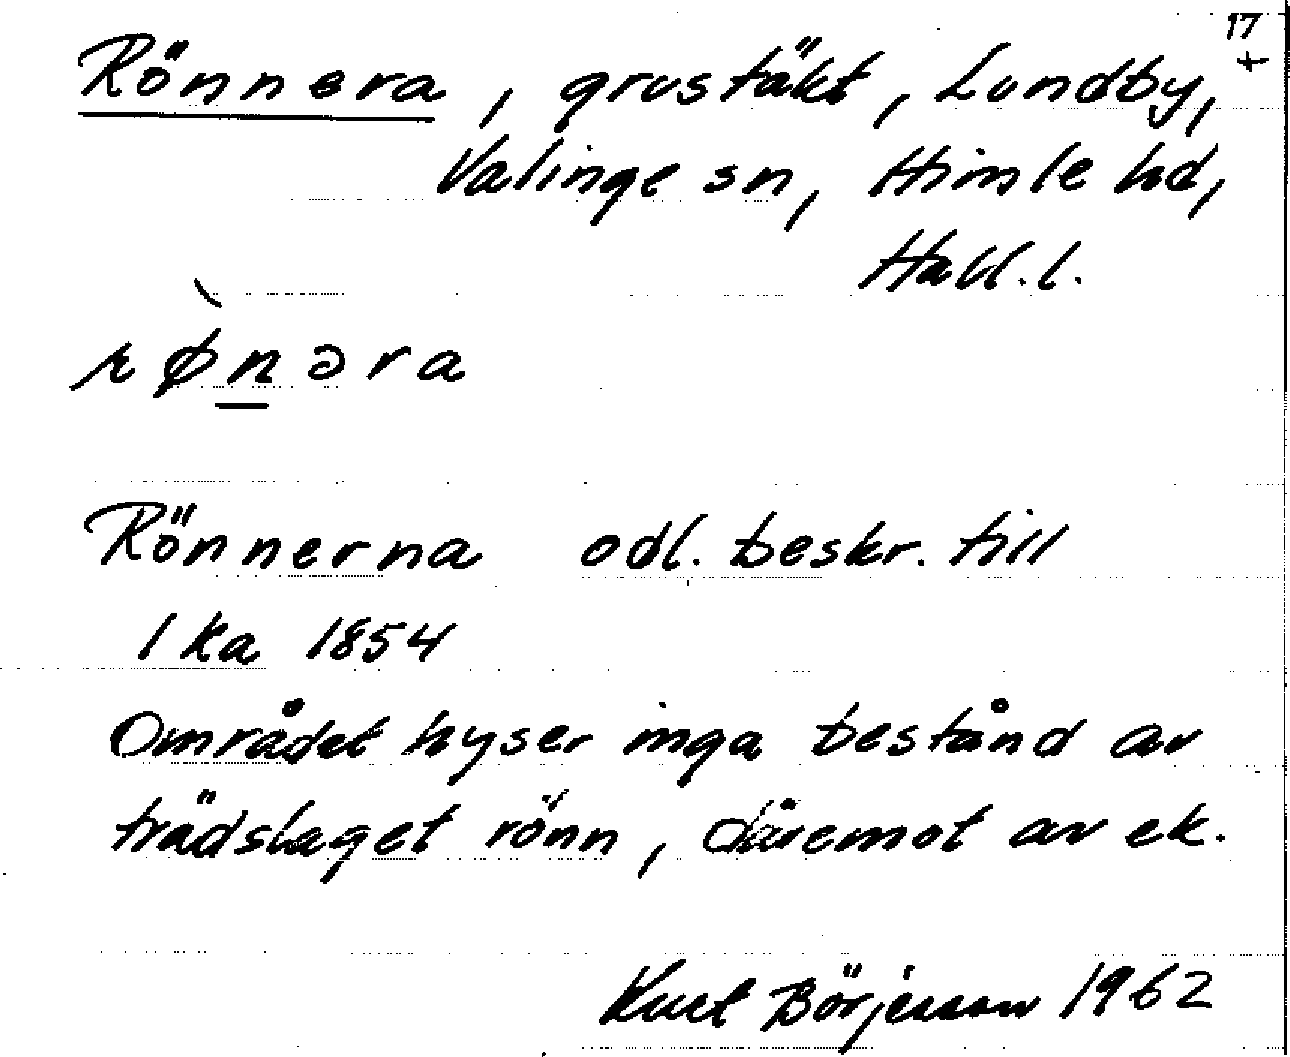 17
+
Rönnera, grustäkt, Lundby,
Valinge sn, Himle hd,
Hall. l.
rø̀nəra
Rönnerna odl. beskr. till
l ka 1854
Området hyser inga bestånd av
trädslaget rönn, däremot av ek.
Kurt Börjesson 1962